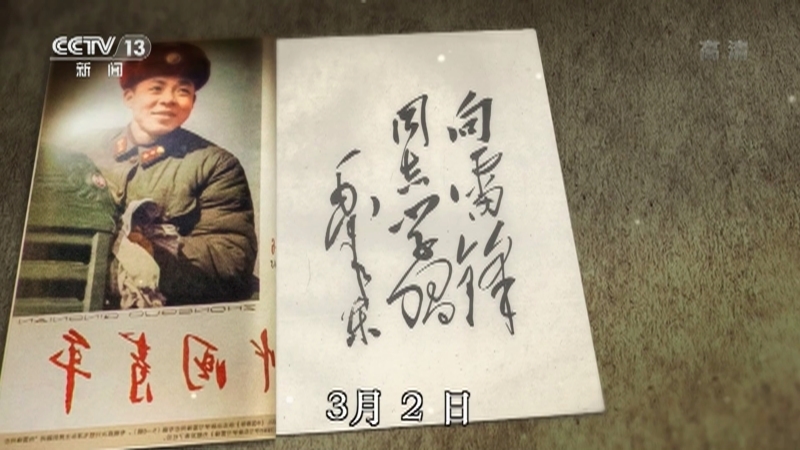 CCTV 13
新闻
高清
向雷锋
同志学习
毛泽东
ZHONGGUO QINGNIAN
中国青年
3月 2 日